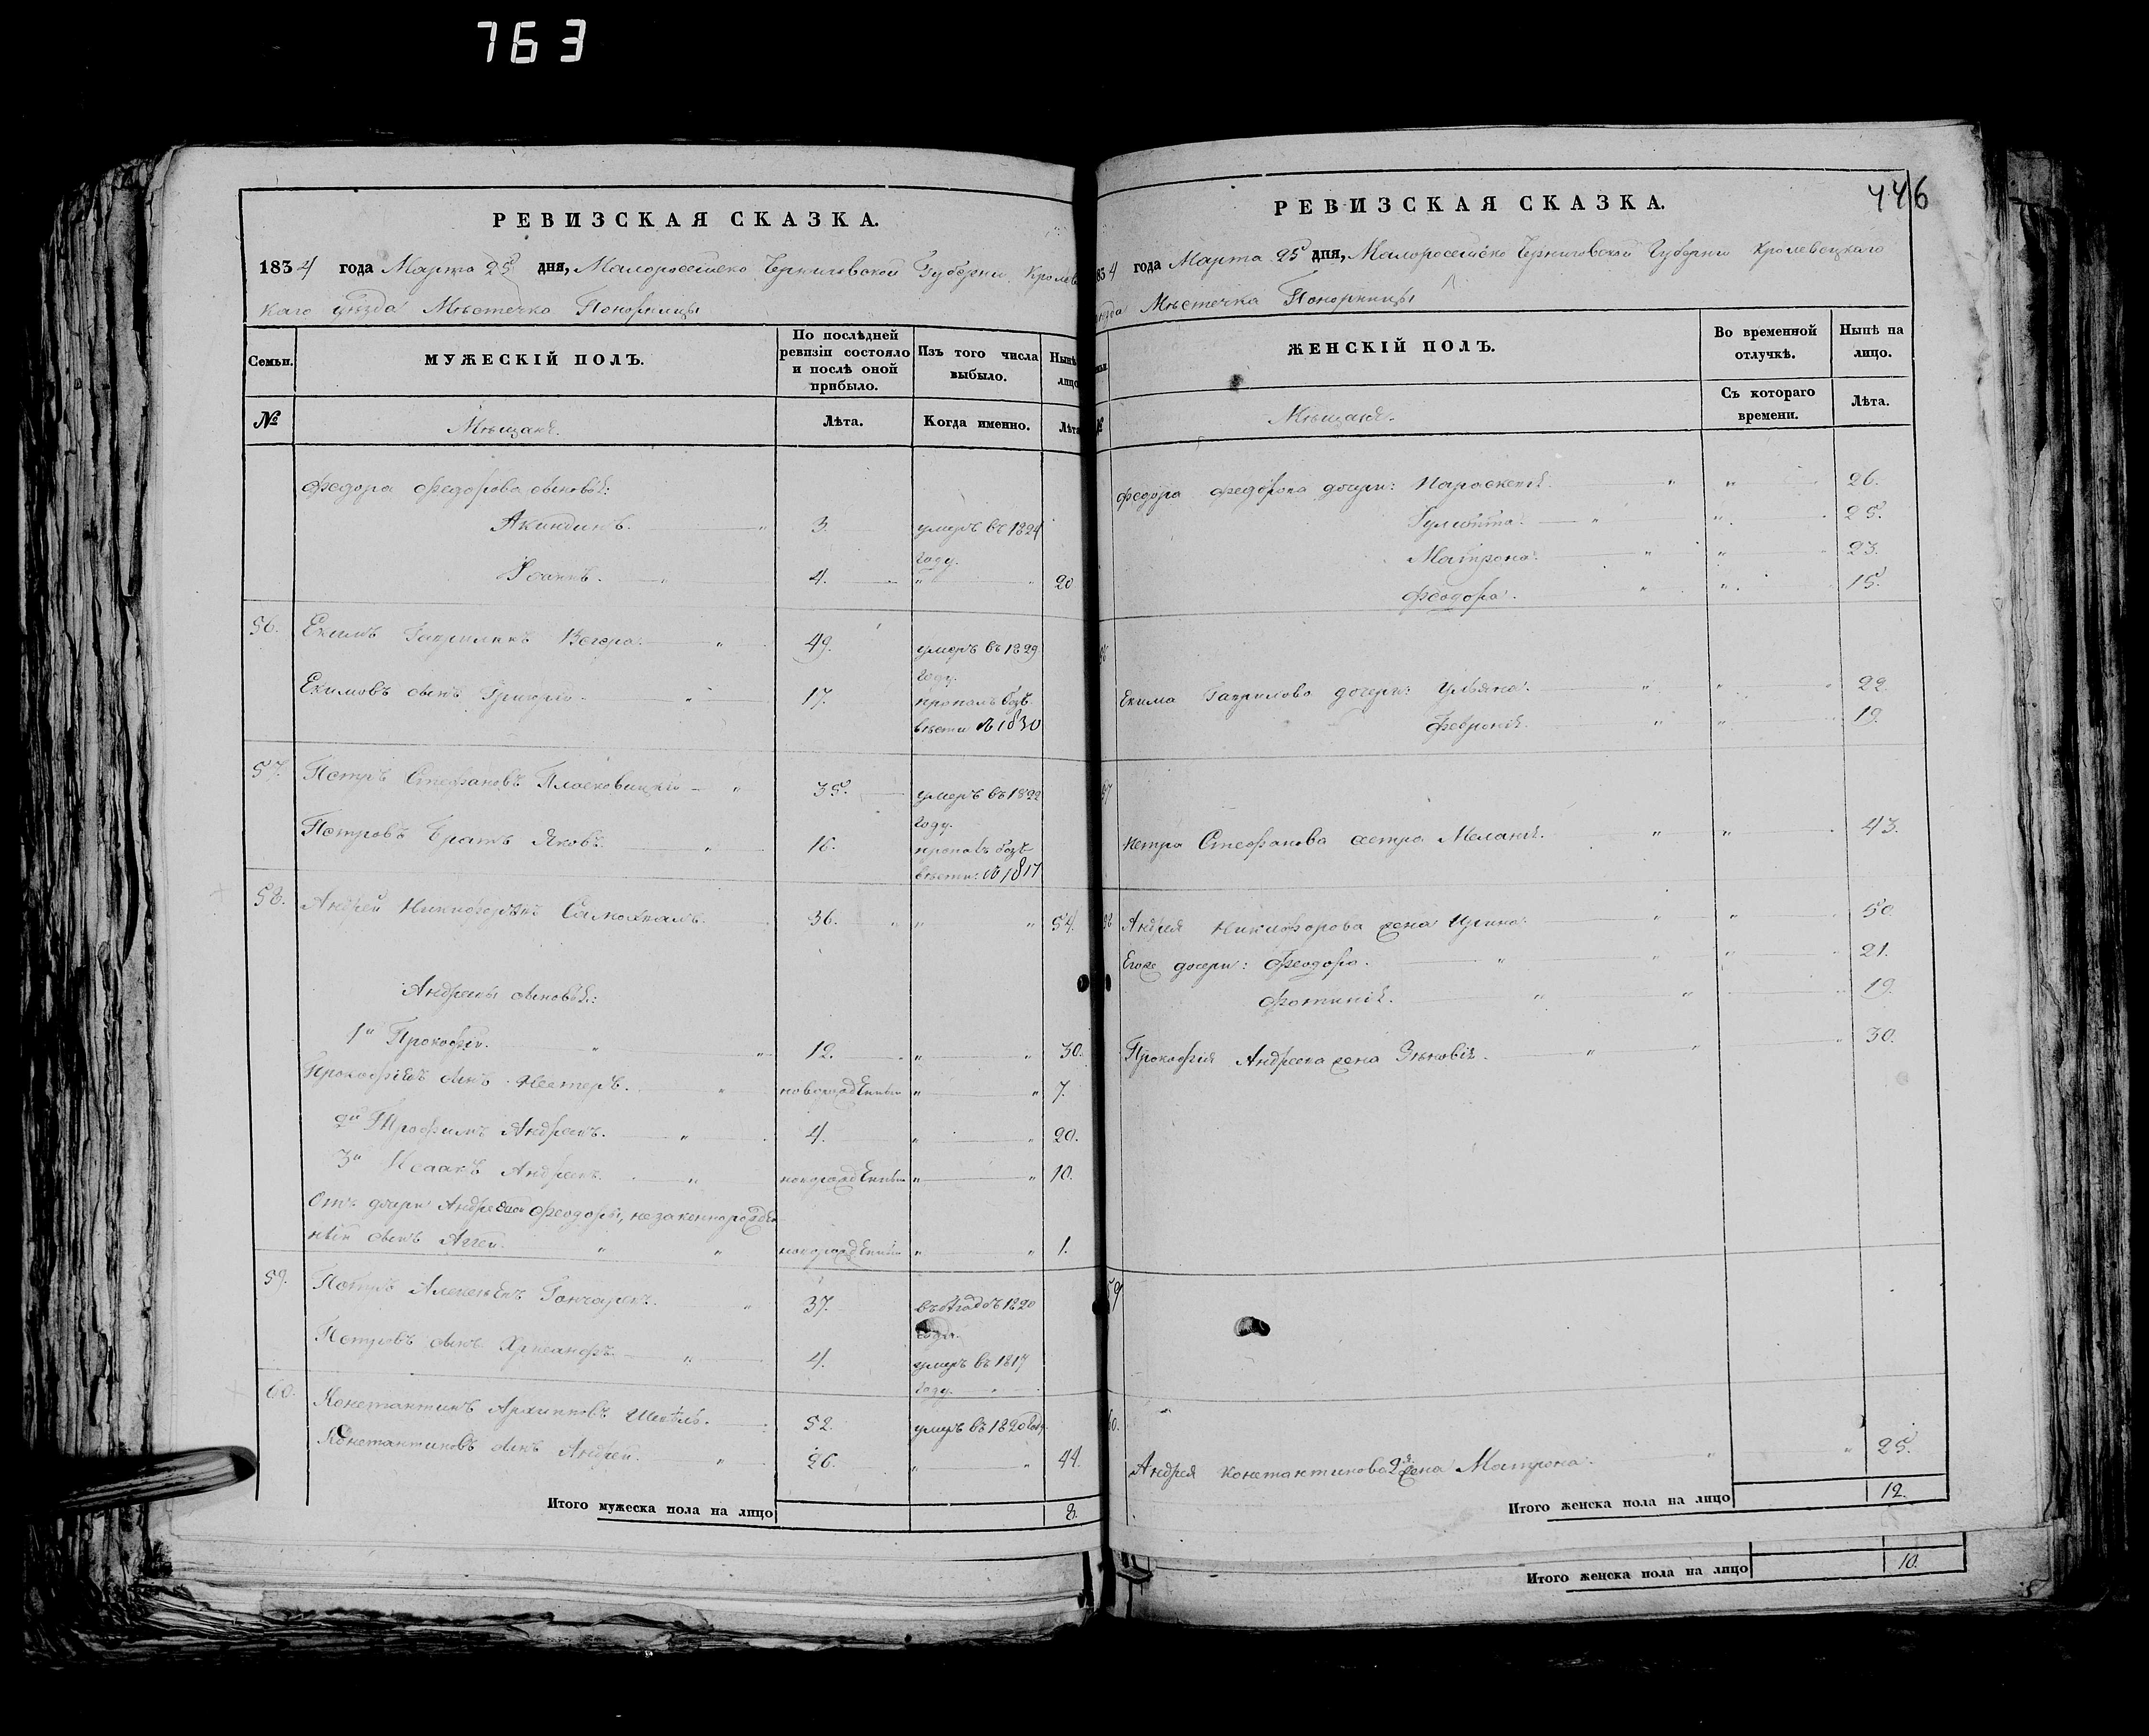 763
РЕВИЗСКАЯ СКАЗКА.
1834 года Марта 25 дня, Малороссийско Черниговской Губерни Кролевец
каго уѣзда Мѣстечко Понорницы
Семьи. МУЖЕСКІЙ ПОЛЪ. По послѣдней ревизіи состояло и послѣ оной прибыло. Изъ того числа выбыло. Нынѣ лицо
№ Мѣщане. Лѣта. Когда именно. Лѣта
Федора Федорова сыновья:
Акиндинъ. 3. умеръ въ 1824 году.
Іоаннъ. 4. 20
56. Екимъ Гавриловъ 49. умеръ въ 1829 году.
Екимовъ сынъ Григорій 17. пропалъ безъ вѣсти въ 1830
57. Петръ Стефановъ Плосковицкій 35. умеръ въ 1822 году.
Петровъ братъ Яковъ. 16. пропалъ безъ вѣсти: въ 1817
58. Андрей Никифоровъ 36. 54.
Андреевы сыновья:
1й Прокофій. 12. 30.
Прокофіевъ сынъ Нестеръ. новорожденный 7.
2й Трофимъ Андреевъ. 4. 20.
3й Исаакъ Андреевъ. новорожденный 10.
Отъ дочери Андреевой Феодоры, незаконнорожден
ный сынъ Аггей. новорожденный 1.
59. Петръ Алексѣевъ Гончаревъ. 37. 1820 года.
Петровъ сынъ Хрисанфъ. 4. умеръ въ 1817 году.
60. Константинъ Архиповъ 52. умеръ въ 1820 году
Константиновъ сынъ Андрей. 26. 44.
Итого мужеска пола на лицо 8.
446
РЕВИЗСКАЯ СКАЗКА.
834 года Марта 25 дня, Малороссийско Черниговской Губерни Кролевецкаго
уѣзда Мѣстечка Понорницы
ЖЕНСКІЙ ПОЛЪ. Во временной отлучкѣ. Нынѣ на лицо.
Мѣщане. Съ котораго времени. Лѣта.
Федора Федорова дочери: Параскевія 26.
Гулитта. 25.
Матрона. 23.
Феодора. 15.
Екима Гаврилова дочери: Ульяна. 22.
Февронія. 19.
57
Петра Стефанова сестра Меланія. 43.
58 Андрея Никифорова жена Ирина. 50
Егоже дочери: Феодора. 21.
Фотинія. 19.
Прокофія Андреева жена Зѣновія. 30.
59
60.
Андрея Константинова 2я жена Матрона. 25.
Итого женска пола на лицо 12.
Итого женска пола на лицо 10.